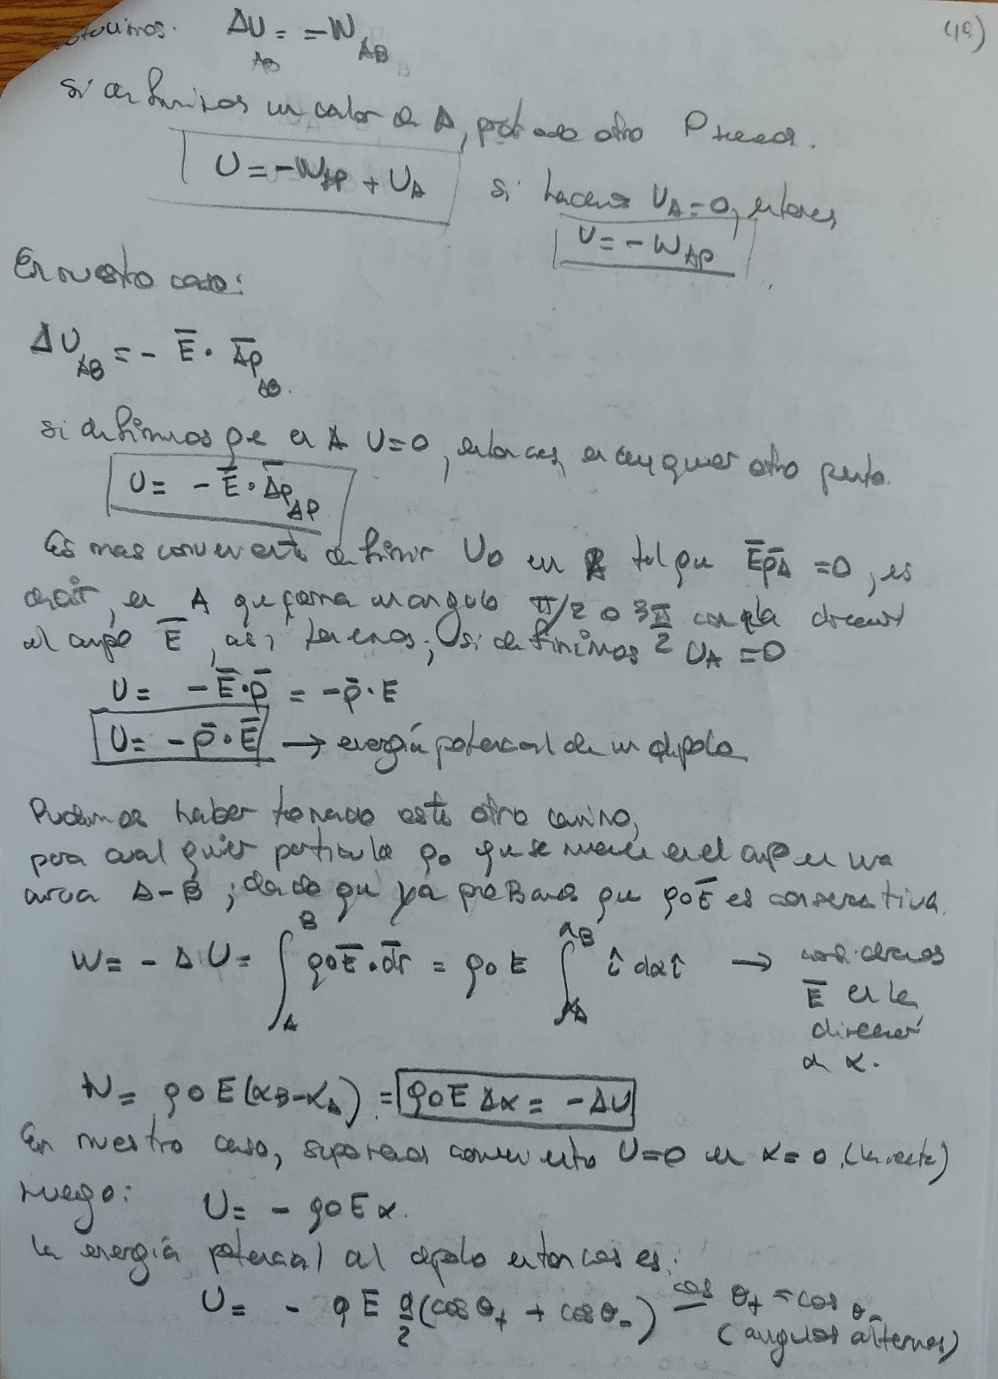 ΔU_AB = -W_AB (19)
Si definimos un valor en A, para todo otro P
U = -W_AP + U_A si hacemos U_A = 0, entonces
U = -W_AP
En nuestro caso:
ΔU_AB = - E̅ · Δ̅p_AB
si definimos que en A U=0, entonces, en cualquier otro punto
U = - E̅ · Δ̅p_AP
Es mas conveniente definir U_0 en A tal que E̅p̅_A = 0, es
decir, en A que forma un angulo π/2 o 3π/2 con la direcc
al campo E̅, así tenemos; si definimos U_A = 0
U = - E̅·p̅ = -p̅·E
U = - p̅·E̅ → energía potencial de un dipolo
Pudimos haber tomado este otro camino,
para cualquier particula q0 que se mueve en el campo en una
A-B; dado que ya probamos que q0E̅ es conservativa.
W = - ΔU = ∫_A^B q0E̅·d̅r = q0 E ∫_{x_A}^{x_B} î dx î → consideramos
E̅ en la
dirección
de x.
W = q0 E(x_B - x_A) = q0 E Δx = -ΔU
En nuestro caso, U=0 en x=0. (la recta)
luego: U = - q0Ex.
la energía potencial al dipolo entonces es:
U = - qE a/2 (cos θ+ + cos θ-) cos θ+ = cos θ-
(angulos alternos)